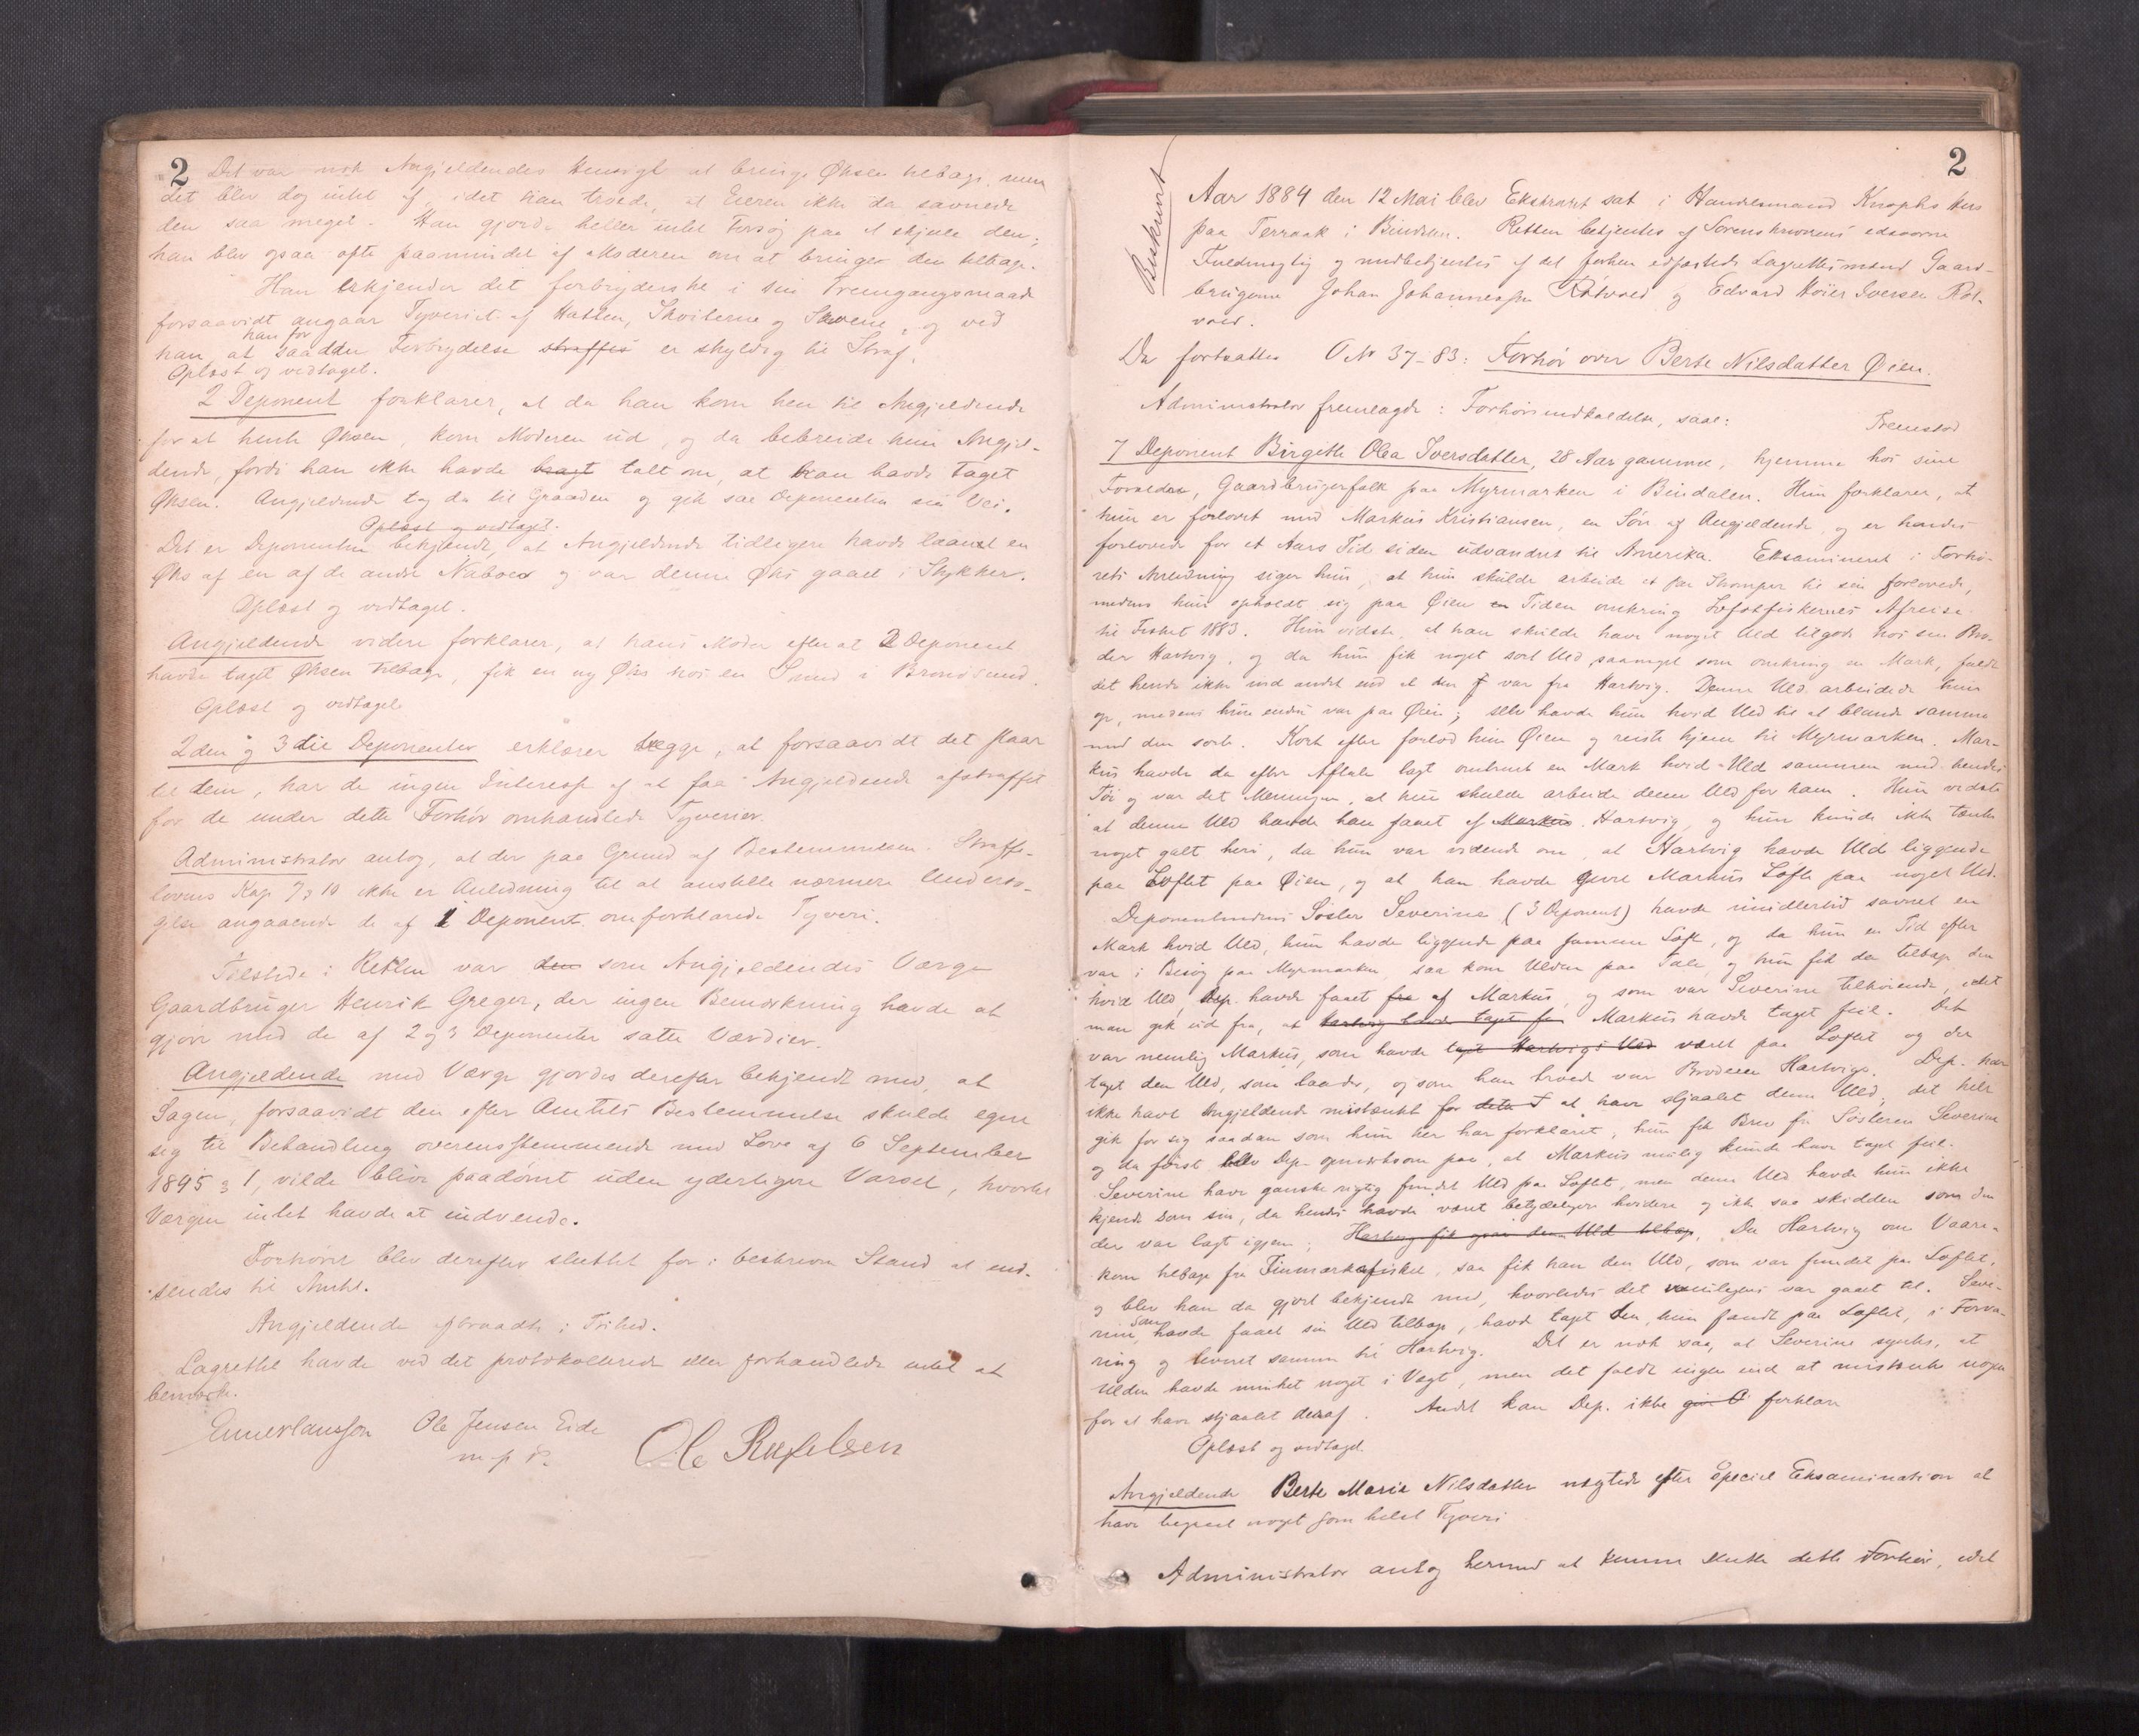 2 Det var nok Angjeldendes Hensigt at bringe Øksen tilbage, men
det blev dog intet af, idet han troede, at Eieren ikke da savnede
den saa meget. Han gjorde heller intet Forsøg paa at skjule den;
han blev ogsaa ofte paamindet af Moderen om at bringe den tilbage.
Han erkjender det forbryderske i sin Fremgangsmaade
forsaavidt angaar Tyveriet af Hatten, Skoiterne og , og ved
han, at han for saadden Forbrydelse straffes er skyldig til Straf.
Oplæst og vedtaget.
2 Deponent forklarer, at da han kom hen til Angjeldende
for at hente Øksen, kom Moderen ud, og da bebreidede hun Angjel-
dende, fordi han ikke havde bragt talt om, at han havde taget
Øksen. Angjeldende tog da til Graaden og gik saa Deponenten sin Vei.
Oplæst og vedtaget.
Det er Deponenten bekjendt, at Angjeldende tidligere havde laanet en
Øks af en af de andre Naboer og var denne Øks gaaet i Stykker.
Oplæst og vedtaget.
Angjeldende videre forklarer, at hans Moder efter at 2 Deponent
havde taget Øksen tilbage, fik en ny Øks hos en Smed i Brønøsund.
Oplæst og vedtaget.
2den og 3die Deponenter erklærer begge, at forsaavidt det staar
til dem, har de ingen Interesse af at faa Angjeldende afstraffet
for de under dette Forhør omhandlede Tyverier.
Administrator antog, at der paa Grund af Bestemmelsen i Straffe-
lovens Kap 7 § 10 ikke er Anledning til at anstille nærmere Undersø-
gelse angaaende de af 1 Deponent omforklarede Tyveri.
Tilstede i Retten var den som Angjeldendes Værge
Gaardbruger Henrik Greger, der ingen Bemærkning havde at
gjøre med de af 2 og 3 Deponenter satte Værdier.
Angjeldende med Værge gjordes derefter bekjendt med, at
Sagen, forsaavidt den efter Amtets Bestemmelse skulde egne
sig til Behandling overensstemmende med Lov af 6 September
1895 § 1, vilde blive paadømt uden yderligere Varsel, hvortil
Værgen intet havde at indvende.
Forhøret blev derefter sluttet for i beskreven Stand at ind-
sendes til Amtet.
Angjeldende aftraadte i Frihed.
Lagrettet havde ved det protokollerede eller forhandlede intet at
bemærke.
Ole Jensen Eide Ole Rafelsen
m. p. P.
2
Beskrevet
Aar 1884 den 12 Mai blev Ekstraret sat i Handelsmand Knophs Hus
paa Terraak i Bindalen. Retten betjentes af Sorenskriverens edsvorne
Fuldmægtig og medbetjentes af det forhen edfæstede Lagrettesmænd Gaard-
brugerne Johan Johannessen Røtvold og Edvard Høier Iversen Røt-
vold.
Da fortsattes O № 37-83: Forhør over Berte Nilsdatter Øien.
Administrator fremlagde: Forhørsindkaldelse, saal: Fremstod
7 Deponent Birgitte Olea Iversdatter, 28 Aar gammel, hjemme hos sine
Forældre, Gaardbrugerfolk paa Myrmarken i Bindalen. Hun forklarer, at
hun er forlovet med Markus Kristiansen, en Søn af Angjeldende, og er hendes
forlovede for et Aars Tid siden udvandret til Amerika. Eksamineret i Forhø-
rets Anledning siger hun, at hun skulde arbeide et par Strømper til sin forlovede,
medens hun opholdt sig paa Øien en Tiden omkring Lofotfiskernes Afreise
til Fisket 1883. Hun vidste, at han skulde have noget Uld tilgode hos sin Bro-
der Hartvig, og da hun fik noget sort Uld, saameget som omkring en Mark, faldt
det hende ikke ind andet end at den f var fra Hartvig. Denne Uld arbeidede hun
op, medens hun endnu var paa Øien; selv havde hun hvid Uld til at blande sammen
med den sorte. Kort efter forlod hun Øien og reiste hjem til Myrmarken. Mar-
kus havde da efter Aftale lagt omtrent en Mark hvid Uld sammen med hendes
Tøi og var det Meningen, at hun skulde arbeide denne Uld for ham. Hun vidste
at denne Uld havde han faaet af Markus Hartvig, og hun kunde ikke tænke
noget galt heri, da hun var vidende om, at Hartvig havde Uld liggende
paa Loftet paa Øien, og at han havde givet Markus Løfte paa noget Uld.
Deponentindens Søster Severine (3 Deponent) havde imidlertid savnet en
Mark hvid Uld, hun havde liggende paa samme Loft, og da hun en Tid efter
var i Besøg paa Myrmarken, saa kom Ulden paa Tale, og hun fik da tilbage den
hvid Uld, Dep. havde faaet fra af Markus, og som var Severine tilhørende, idet
man gik ud fra, at Hartvig havde taget fe Markus havde taget feil. Det
var nemlig Markus, som havde taget Hartvigs Uld været paa Loftet og der
taget den Uld, som laa der, og som han troede var Broderen Hartvigs. Dep. har
ikke havt Angjeldende mistænkt for dette T at have stjaalet denne Uld; det hele
gik for sig saadan som hun her har forklaret; hun fik Brev fra Søsteren Severine
og da først blev Dep. opmærksom paa, at Markus mulig kunde have taget feil.
Severine havde ganske rigtig fundet Uld paa Loftet, men denne Uld havde hun ikke
kjendt som sin, da hendes havde været betydeligere hvidere og ikke saa skidden som den
der var lagt igjen; Hartvig fik den Uld tilbage. Da Hartvig om Vaaren
kom tilbage fra Finmarksfisket, saa fik han den Uld, som var fundet paa Loftet,
og blev han da gjort bekjendt med, hvorledes det var gaaet til. Seve-
rine, som havde faaet sin Uld tilbage, havde taget den, hun fandt paa Loftet, i Forva-
ring og leveret samme til Hartvig. Det er nok saa, at Severine syntes, at
Ulden havde minket noget i Vægt, men det faldt ingen ind at mistænke nogen
for at have stjaalet deraf. Andet kan Dep. ikke forklare
Oplæst og vedtaget.
Angjeldende Berte Marie Nilsdatter nægtede efter Speciel Eksamination at
have begaaet noget som helst Tyveri
Administrator antog hermed at kunne slutte dette Forhør, idet